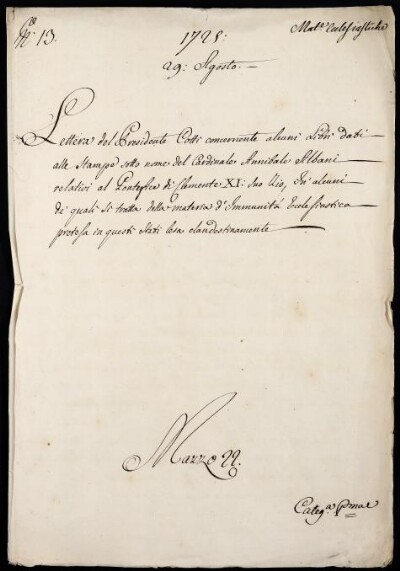 N.° 13.
Mat.e Ecclesiastiche
1725.
29. Agosto.
Lettera del Presidente Cotti concernente alcuni Libri dati
alle Stampe sotto nome del Cardinale Annibale Albani
relativi al Pontefice di Clemente XI. suo Zio, in alcuni
de quali si tratta della materia d'Immunità Ecclesiastica
pretesa in questi Stati ma clandestinamente
Mazzo 22.
Categ.a Pma